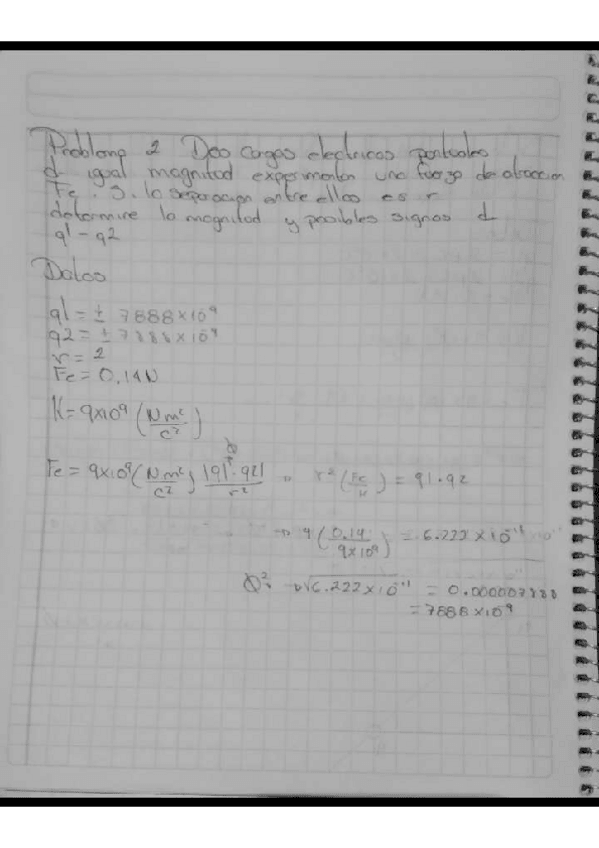 Problema 2 Dos cargas electricas puntuales
d igual magnitud experimentan una fuerza de atraccion
Fe. S. la separacion entre ellas es r
determine la magnitud y posibles signos d
q1 - q2
Datos
q1 = ± 7888x10⁻⁹
q2 = ± 7888x10⁻⁹
r = 2
Fe = 0,14N
K = 9x10⁹ (Nm²/c²)
Fe = 9x10⁹ (Nm²/c²) |q1·q2|/r² r² (Fe/K) = q1·q2
4 (0.14/9x10⁹) = 6.222x10⁻¹¹
Q² √6.222x10⁻¹¹ = 0.000007888
= 7888x10⁻⁹